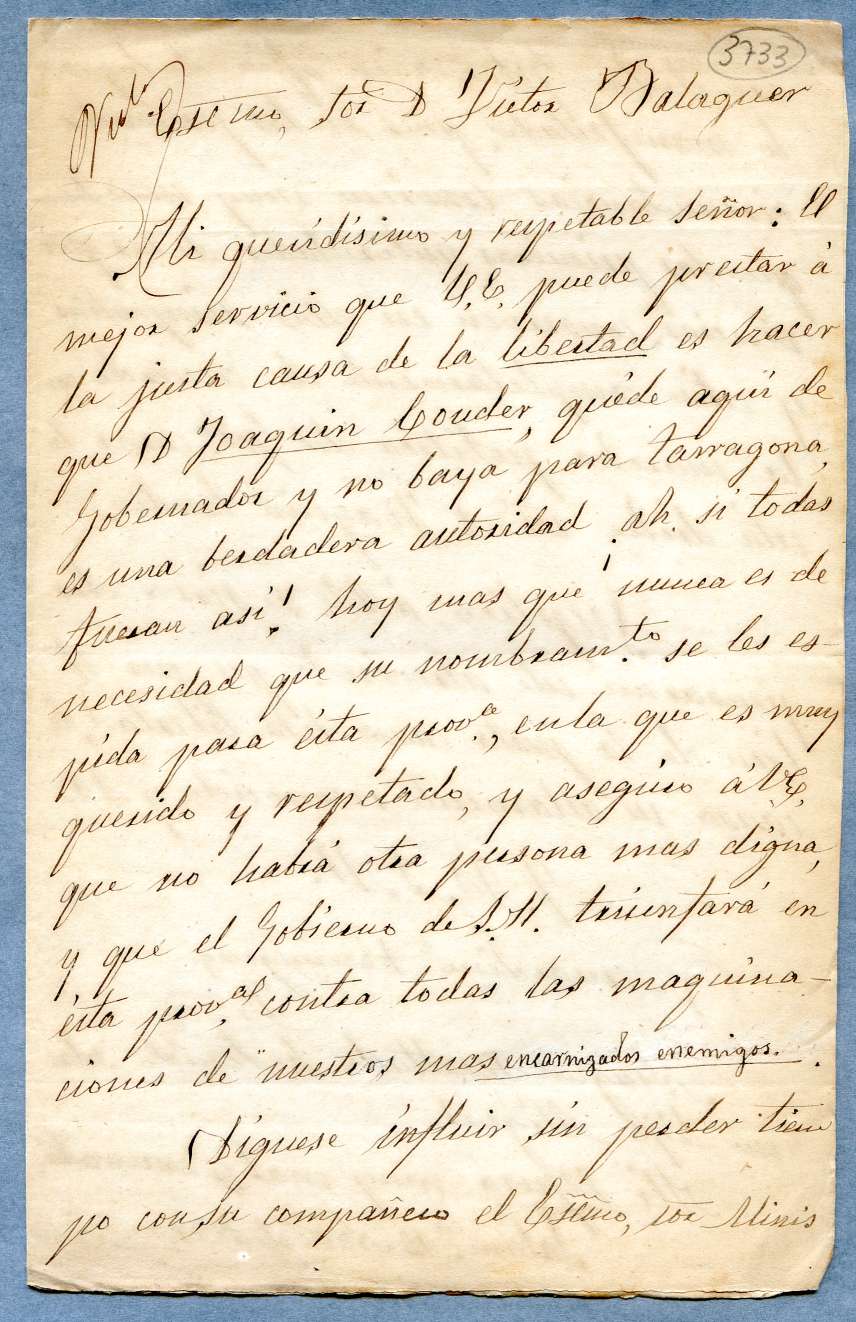 3733
Exsmo, sor D Victor Balaguer
Mi queridísimo y respetable señor: El
mejor servicio que V.E. puede prestar á
la justa causa de la libertad es hacer
que D Joaquin Couder, quéde aquí de
Gobernador y no baya para tarragona,
es una berdadera autoridad. ah. si todas
fueran así! hoy mas que nunca es de
necesidad que su nombramto. se les es-
pida para ésta prova., en la que es muy
querido y respetado, y aseguro á V.E,
que no habrá otra persona mas digna,
y que el Gobierno de S.M. triunfará en
ésta prova. contra todas las maquina-
ciones de nuestros mas encarnizados enemigos.
Díguese influir sin perder tiem
po con su compañero el Exsmo, sor Minis